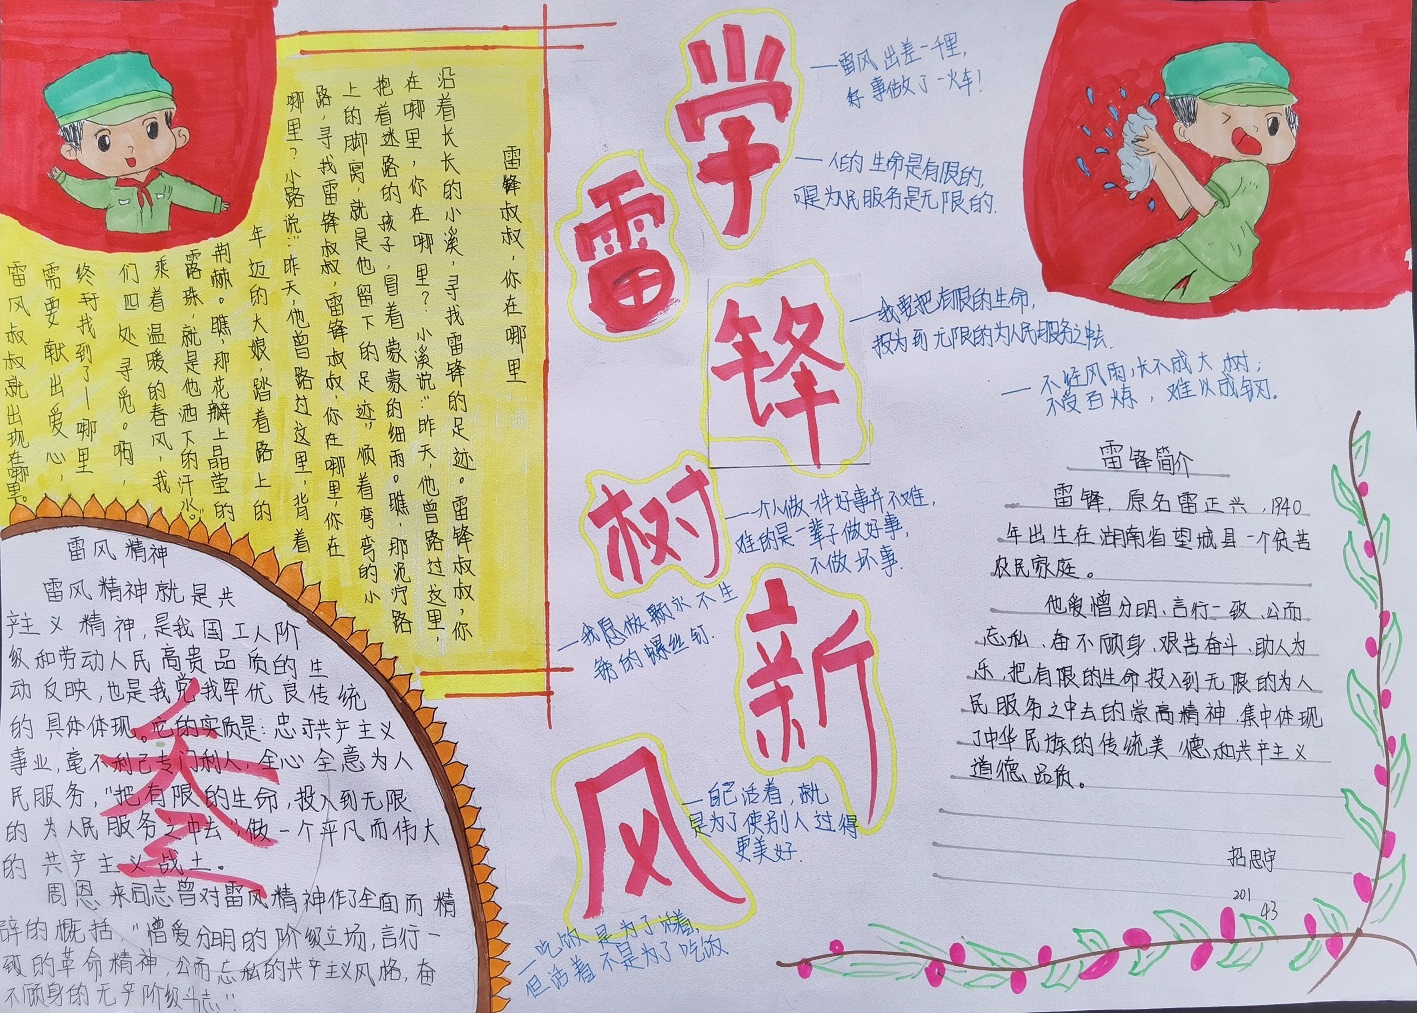 雷锋叔叔,你在哪里
沿着长长的小溪,寻找雷锋的足迹。雷锋叔叔,你
在哪里,你在哪里?小溪说:"昨天,他曾路过这里,
抱着迷路的孩子,冒着蒙蒙的细雨。瞧,那泥泞路
上的脚窝,就是他留下的足迹,"顺着弯弯的小
路,寻找雷锋叔叔,雷锋叔叔,你在哪里,你在
哪里?小路说:"昨天,他曾路过这里,背着
年迈的大娘,踏着路上的
荆棘。瞧,那花瓣上晶莹的
露珠,就是他洒下的汗水。"
乘着温暖的春风,我
们四处寻觅。啊,
终于找到了—哪里
需要献出爱心,
雷风叔叔就出现在哪里。
学
雷
锋
树
新
风
—雷风出差一千里,
好事做了一火车!
—人的生命是有限的,
是为人民服务是无限的.
—我要把有限的生命,
投为到无限的为人民服务之中去.
—不经风雨,长不成大树;
不受百炼,难以成钢。
—一个人做一件好事并不难,
难的是一辈子做好事,
不做坏事.
—我愿做颗永不生
锈的螺丝钉.
—自己活着,就
是为了使别人过得
更美好.
—吃饭是为了活着,
但活着不是为了吃饭
雷锋简介
雷锋,原名雷正兴,1940
年出生在湖南省望城县一个贫苦
农民家庭。
他爱憎分明、言行一致、公而
忘私、奋不顾身、艰苦奋斗、助人为
乐,把有限的生命投入到无限的为人
民服务之中去的崇高精神,集中体现
了中华民族的传统美德和共产主义
道德品质。
思宇
201
43
雷风精神
雷风精神就是共
产主义精神,是我国工人阶
级和劳动人民高贵品质的生
动反映,也是我党我军优良传统
的具体体现。它的实质是:忠于共产主义
事业,毫不利己专门利人,全心全意为人
民服务,"把有限的生命,投入到无限
的为人民服务之中去",做一个平凡而伟大
的共产主义战士。
周恩来同志曾对雷风精神作了全面而精
辟的概括,"憎爱分明的阶级立场,言行一
致的革命精神,公而忘私的共产主义风格,奋
不顾身的无产阶级斗志."